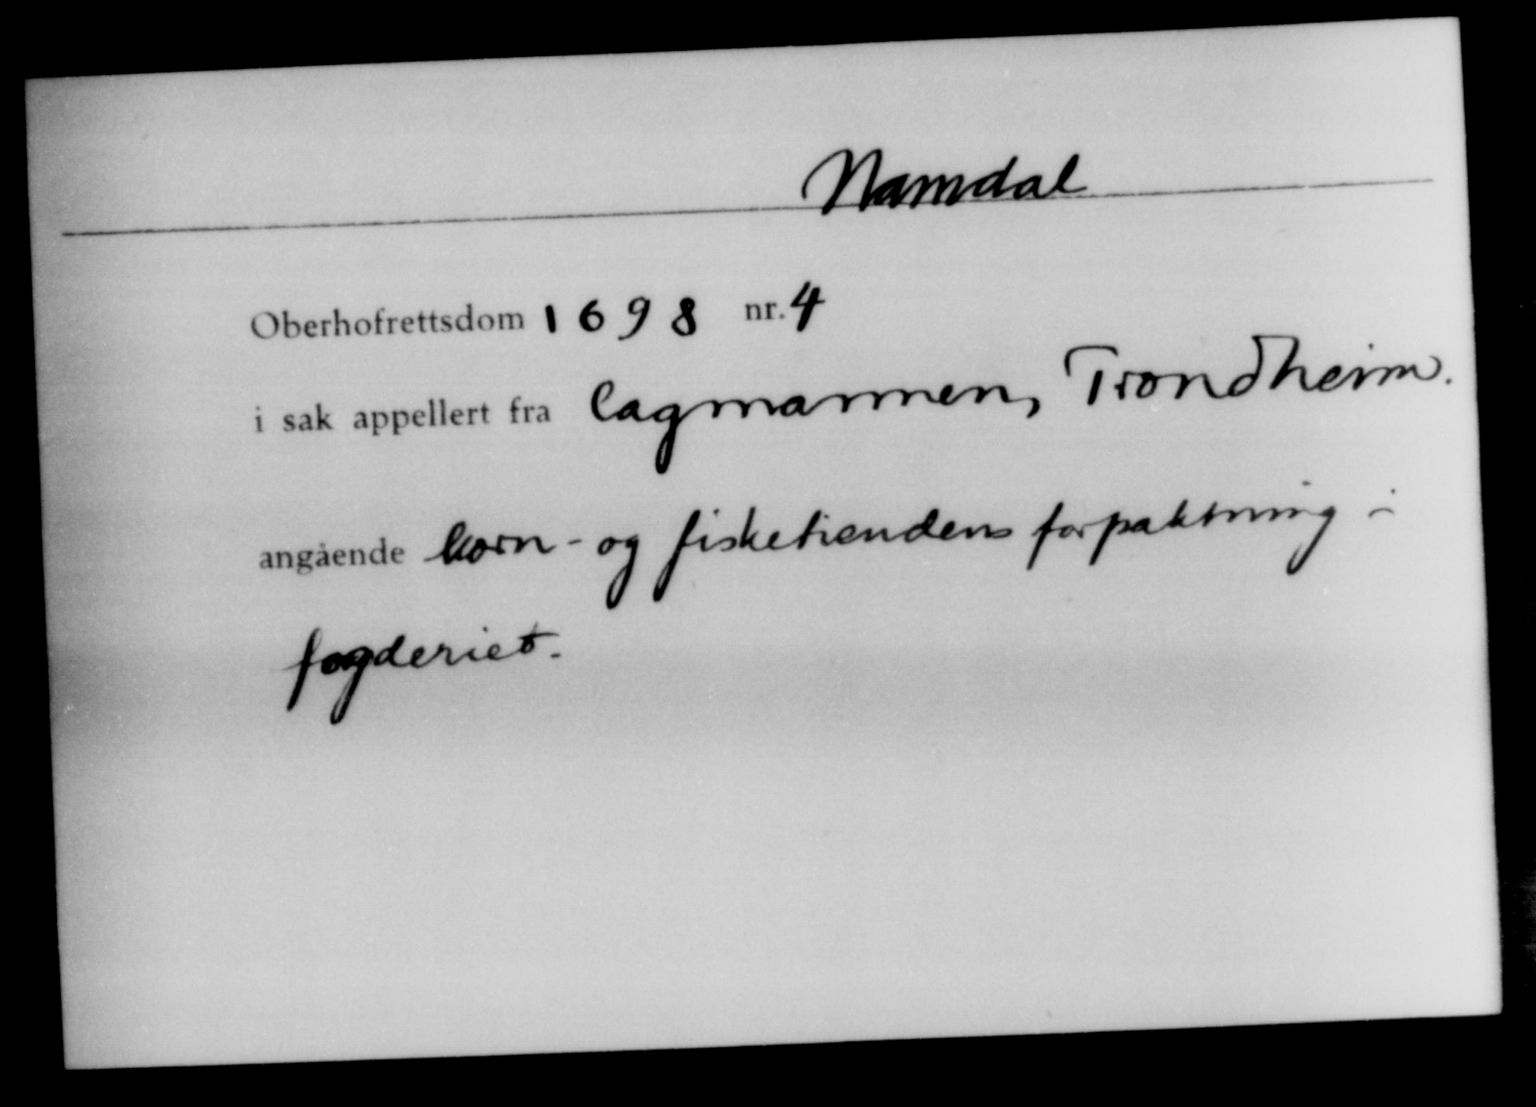 Namdal
Oberhofrettsdom 1698 nr. 4
i sak appellert fra lagmannen, Trondheim.
angående korn- og fisketiendens forpaktning i
fogderiet.